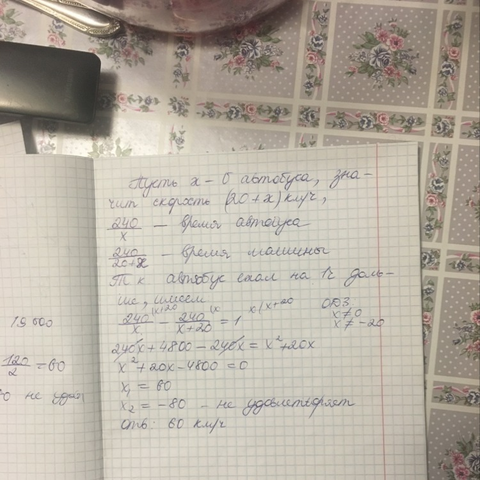 Пусть x – υ автобуса, зна-
чит скорость (20+x) км/ч,
240/x – время автобуса
240/20+x – время машины
Т к автобус ехал на 1ч доль-
ше, имеем
240/x |x+20 – 240/x+20 |x = 1 x(x+20 ОДЗ:
x≠0
x≠-20
240x + 4800 – 240x = x² + 20x
x² + 20x – 4800 = 0
x₁ = 60
x₂ = -80 – не удовлетворяет
Отв: 60 км/ч
120/2 = 60
не удов